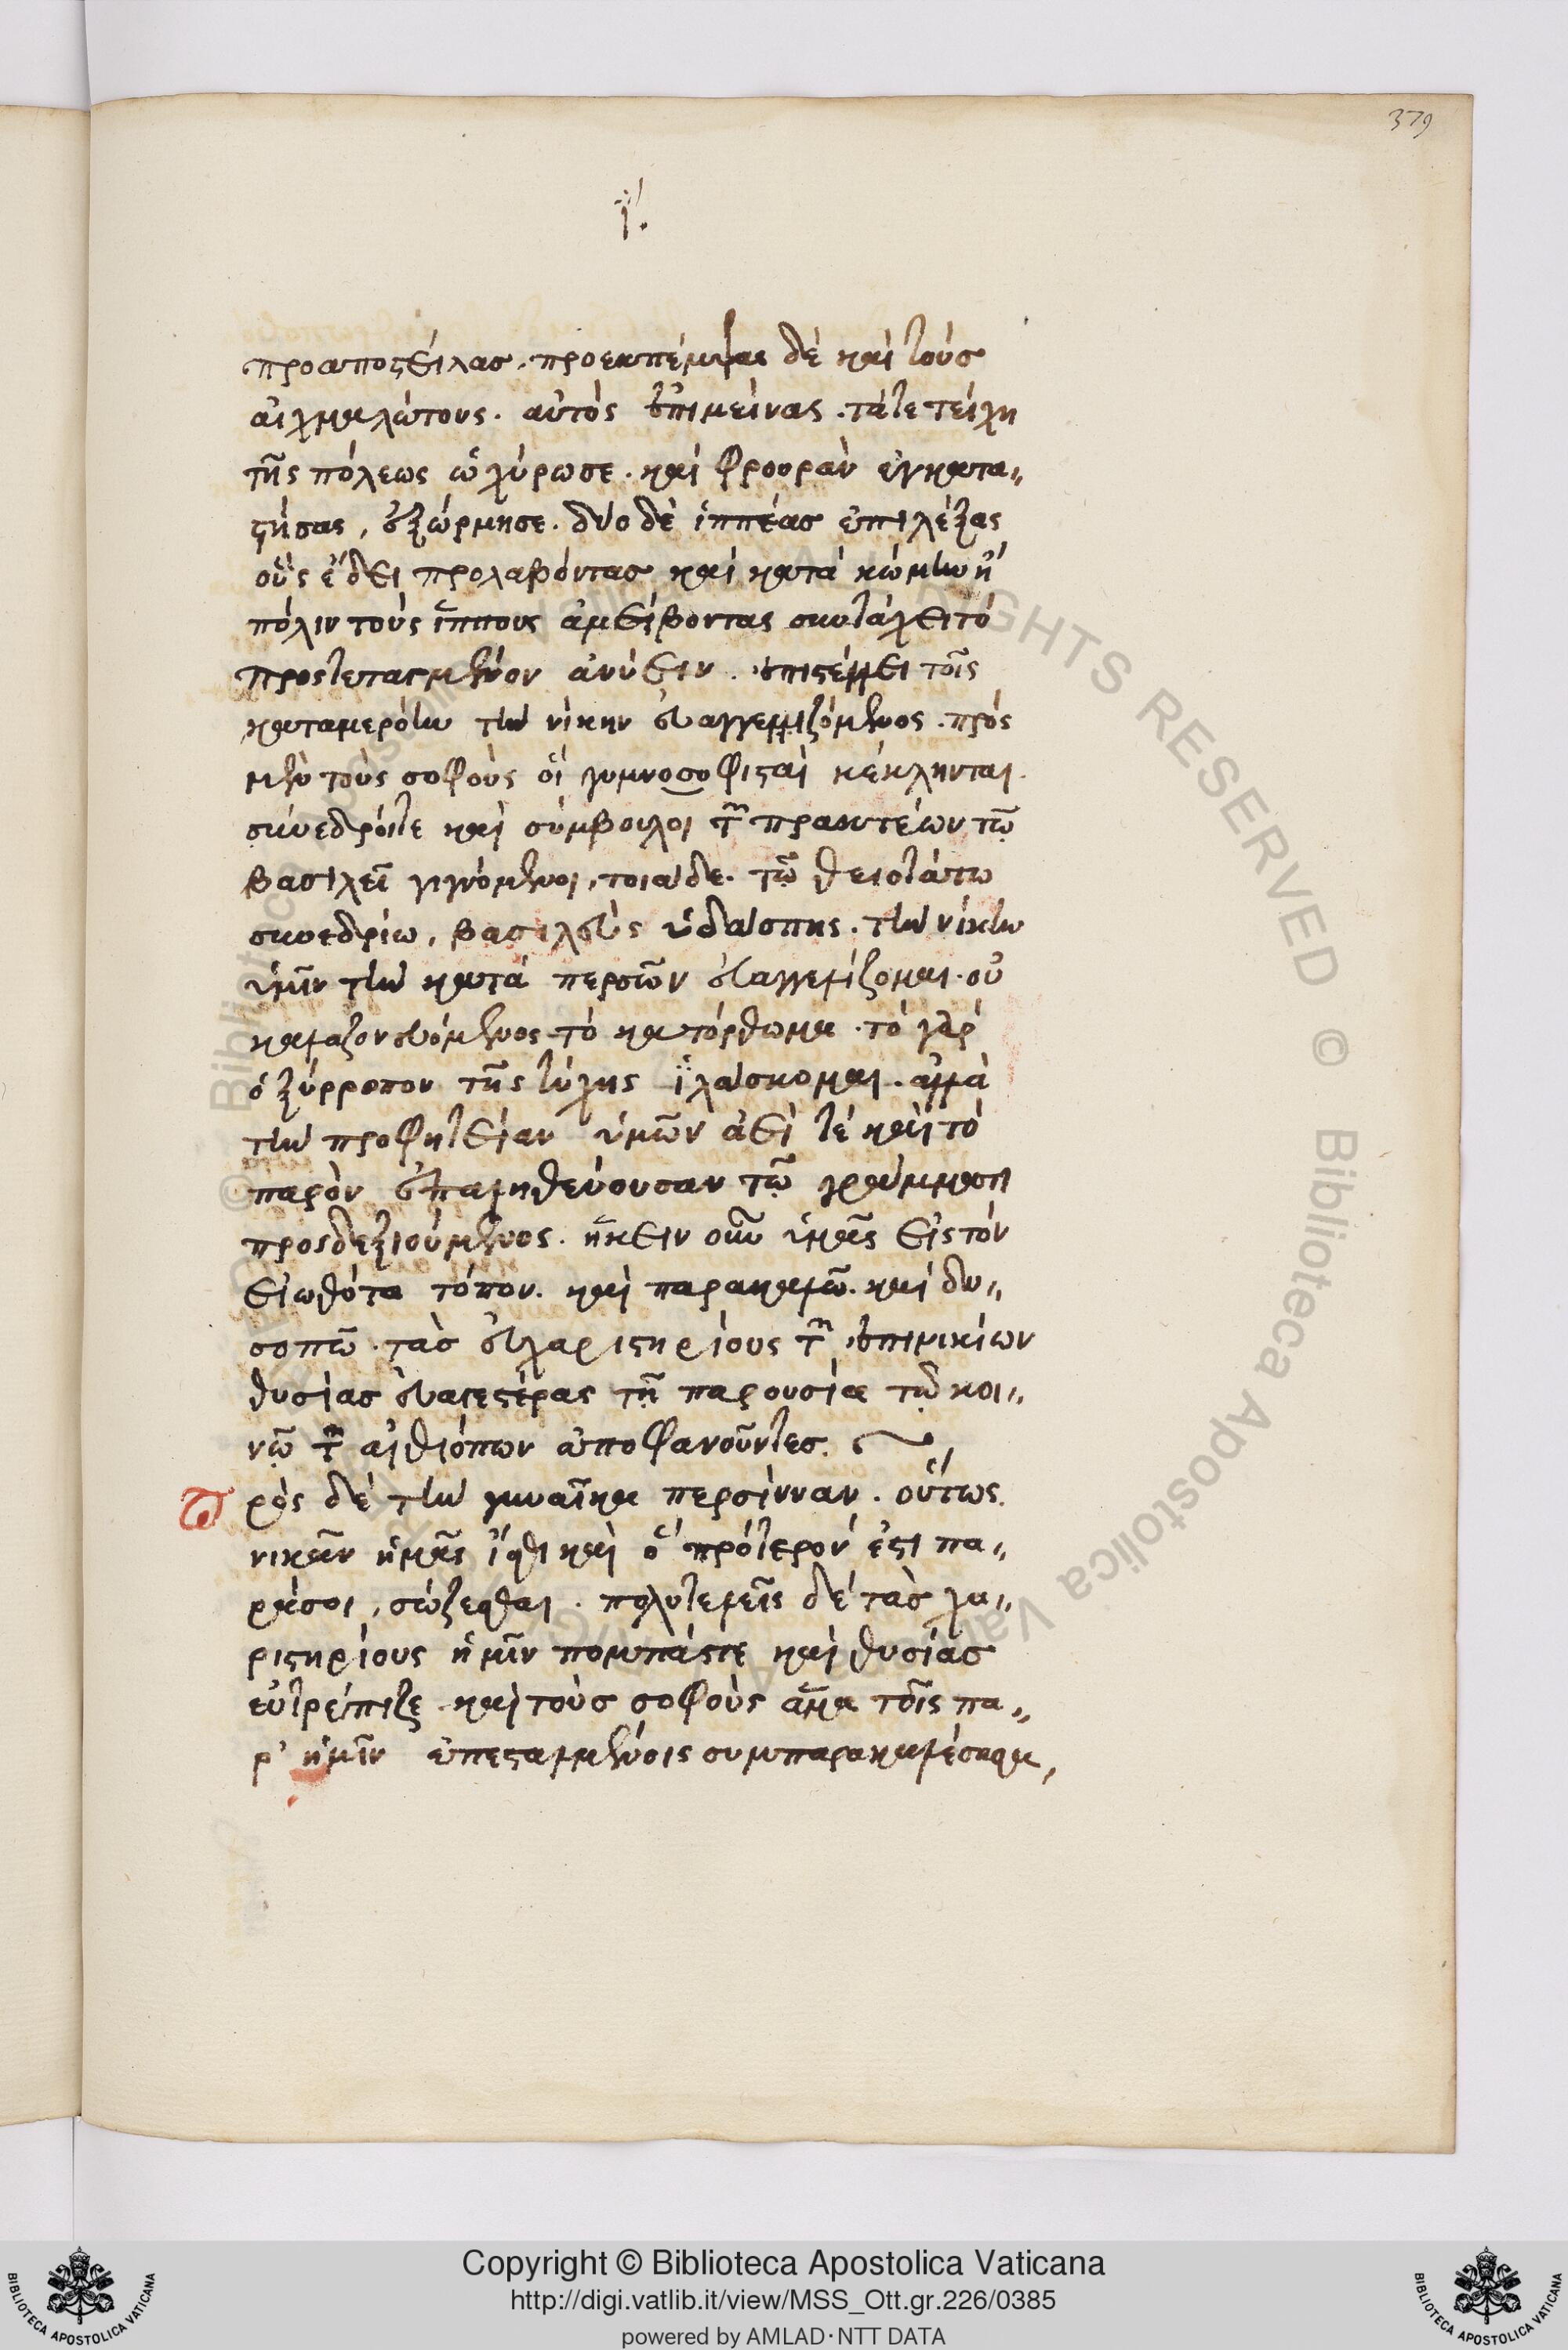 379
ϊ.
προαποστείλας. προεκπέμψας δὲ καὶ τοὺς
αἰχμαλώτους. αὐτὸς ἐπιμείνας. τά τε τείχη
τῆς πόλεως ὠχύρωσε. καὶ φρουρὰν ἐγκατα-
στήσας, ἐξώρμησε. δύο δὲ ἱππέας ἐπιλέξας
οὓς ἔδει προλαβόντας καὶ κατὰ κώμην ἢ
πόλιν τοὺς ἵππους ἀμείβοντας συντάχει τὸ
προστεταγμένον ἀνύειν. ἐπιστέλλει τοῖς
κατὰ μερόην τὴν νίκην εὐαγγελιζόμενος. πρὸς
μὲν τοὺς σοφοὺς οἳ γυμνοσοφισταὶ κέκληνται.
σύνεδροί τε καὶ σύμβουλοι τῶν πρακτέων τῷ
βασιλεῖ γιγνόμενοι, τοιάδε. τῷ θειοτάτω
συνεδρίω, βασιλεὺς ὑδάσπης. τὴν νίκην
ὑμῖν τὴν κατὰ περσῶν εὐαγγελίζομαι. οὐ
καλαζονευόμενος τὸ κατόρθωμα. τὸ γὰρ
ὀξύρροπον τῆς τύχης ἱλάσκομαι. ἀλλὰ
τὴν προφητείαν ὑμῶν ἀεί τε καὶ τὸ
παρὸν ἐπαληθεύουσαν τῷ γράμματι
προσδεξιούμενος. ἥκειν οὖν ὑμᾶς εἰς τὸν
εἰωθότα τόπον. καὶ παρακαλῶ. καὶ δυ-
σωπῶ. τὰς εὐχαριστηρίους τῶν ἐπινικίων
θυσίας εὐαγεστέρας τῇ παρουσία τῷ κοι-
νῷ τῶν αἰθιόπων ἀποφανοῦντες.
Πρὸς δὲ τὴν γυναῖκα περσίνναν. οὕτως.
νικᾶν ἡμᾶς ἴσθι καὶ ὃ πρότερόν ἐστι πα-
ρά σοι, σώζεσθαι. πολυτελεῖς δὲ τὰς χα-
ριστηρίους ἡμῖν πομπάς τε καὶ θυσίας
εὐτρέπιζε καὶ τοὺς σοφοὺς ἅμα τοῖς πα-
ρ' ἡμῖν ἐπεσταλμένοις συμπαρακαλέσασα,
Copyright © Biblioteca Apostolica Vaticana
http://digi.vatlib.it/view/MSS_Ott.gr.226/0385
powered by AMLAD·NTT DATA
BIBLIOTECA APOSTOLICA VATICANA
BIBLIOTECA APOSTOLICA VATICANA